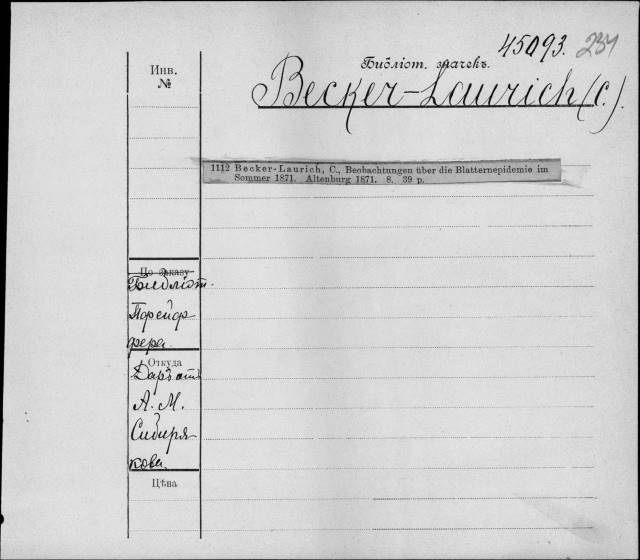 45093. 234
Инв.
№
Библіот. значекъ.
Becker-Laurich (C.).
1112 Becker-Laurich, C., Beobachtungen über die Blatternepidemie im
Sommer 1871. Altenburg 1871. 8. 39 p.
По заказу
Библіот.
Пфейф-
фера.
Откуда
Даръ отъ
А. М.
Сибиря-
кова.
Цѣна